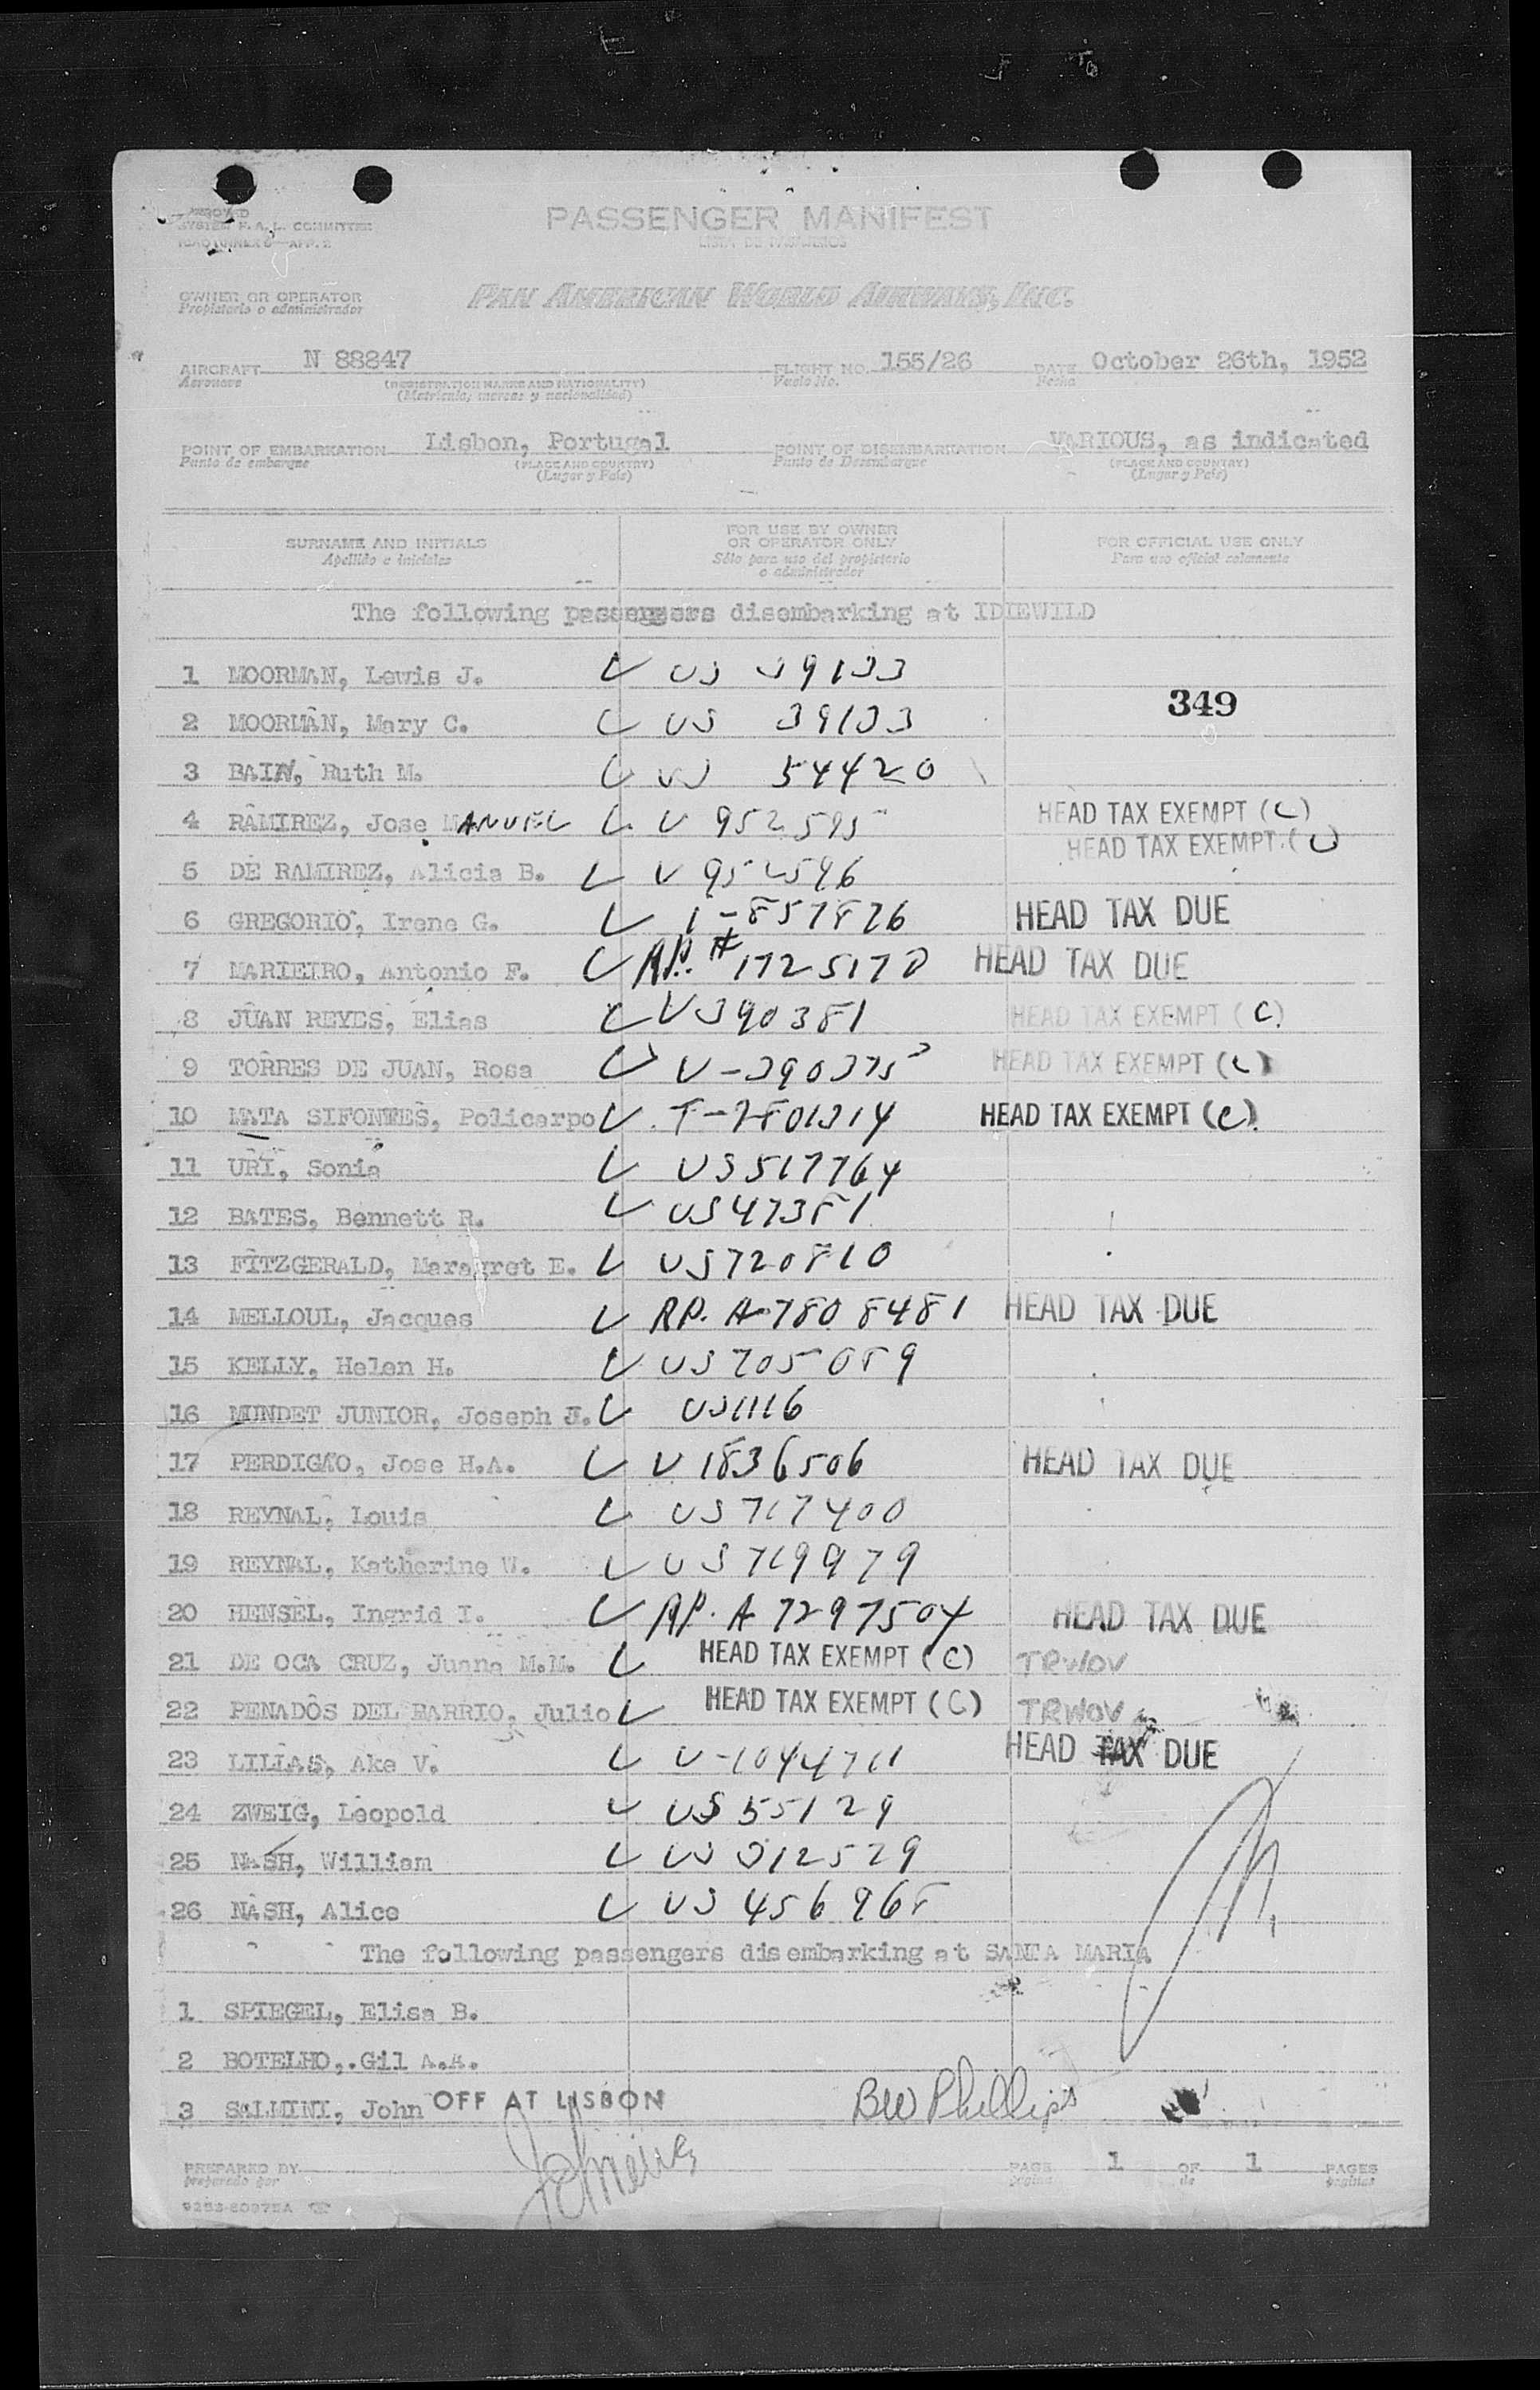 APPROVED
SYSTEM F. A. L. COMMITTEE
PASSENGER MANIFEST
LISTA DE PASAJEROS
OWNER OR OPERATOR
Propietario o administrador
PAN AMERICAN WORLD AIRWAYS, INC.
AIRCRAFT N 88847 FLIGHT NO. 155/26 DATE October 26th, 1952
Aeronave (REGISTRATION MARKS AND NATIONALITY) Vuelo No. Fecha
(Matrícula, marcas y nacionalidad)
POINT OF EMBARKATION Lisbon, Portugal POINT OF DISEMBARKATION VARIOUS, as indicated
Punto de embarque (PLACE AND COUNTRY) Punto de Desembarque (PLACE AND COUNTRY)
(Lugar y País) (Lugar y País)
SURNAME AND INITIALS FOR USE BY OWNER OR OPERATOR ONLY FOR OFFICIAL USE ONLY
Apellido e iniciales Sólo para uso del propietario o administrador Para uso oficial solamente
The following passengers disembarking at IDIEWILD
1 MOORMAN, Lewis J. US 39133
349
2 MOORMAN, Mary C. US 39133
3 BAIN, Ruth M. US 54420
4 RAMIREZ, Jose MANUEL V 952595 HEAD TAX EXEMPT (C)
HEAD TAX EXEMPT (C)
5 DE RAMIREZ, Alicia B. V 952596
6 GREGORIO, Irene G. I-857876 HEAD TAX DUE
7 MARIEIRO, Antonio F. RP. # 1725170 HEAD TAX DUE
8 JUAN REYES, Elias V390381 HEAD TAX EXEMPT (C)
9 TORRES DE JUAN, Rosa V-390375 HEAD TAX EXEMPT (C)
10 MATA SIFONTES, Policarpo T-7801314 HEAD TAX EXEMPT (C)
11 URI, Sonia US517764
12 BATES, Bennett R. US47381
13 FITZGERALD, Maragret E. US720810
14 MELLOUL, Jacques RP. A-7808481 HEAD TAX DUE
15 KELLY, Helen H. US705089
16 MUNDET JUNIOR, Joseph J. US1116
17 PERDIGAO, Jose H.A. V 1836506 HEAD TAX DUE
18 REYNAL, Louis US717400
19 REYNAL, Katherine W. US719979
20 HENSEL, Ingrid I. RP. A 7297504 HEAD TAX DUE
21 DE OCA CRUZ, Juana M.M. HEAD TAX EXEMPT (C) TRWOV
22 PENADOS DEL BARRIO, Julio HEAD TAX EXEMPT (C) TRWOV
23 LILIAS, Ake V. V-1044711 HEAD TAX DUE
24 ZWEIG, Leopold US55129
25 NASH, William US 312529
26 NASH, Alice US 456968
The following passengers disembarking at SANTA MARIA
1 SPIEGEL, Elisa B.
2 BOTELHO, Gil A.A.
3 SALMINI, John OFF AT LISBON BW Phillips
PREPARED BY PAGE 1 OF 1 PAGES
preparado por página de páginas